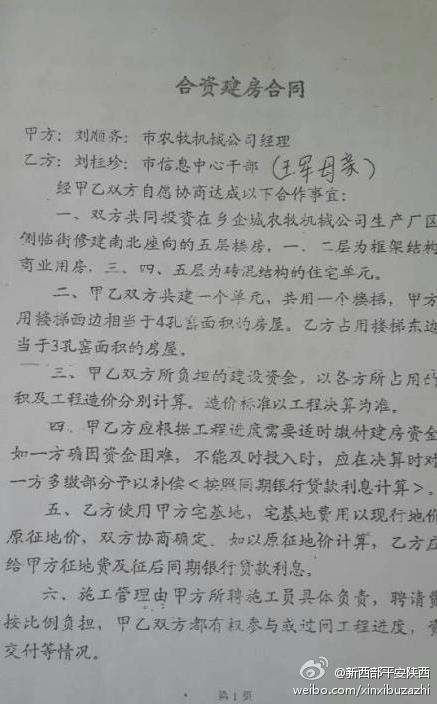 合资建房合同
甲方：刘顺齐：市农牧机械公司经理
乙方：刘桂珍：市信息中心干部（王军母亲）
经甲乙双方自愿协商达成以下合作事宜：
一、双方共同投资在乡企城农牧机械公司生产厂区
侧临街修建南北座向的五层楼房，一．二层为框架结构
商业用房，三、四、五层为砖混结构的住宅单元。
二、甲乙双方共建一个单元，共用一个楼梯，甲方
用楼梯西边相当于4孔窑面积的房屋。乙方占用楼梯东边
当于3孔窑面积的房屋。
三、甲乙双方所负担的建设资金，以各方所占用
积及工程造价分别计算。造价标准以工程决算为准。
四、甲乙方应根据工程进度需要适时缴付建房资金
如一方确因资金困难，不能及时投入时，应在决算时对
一方多缴部分予以补偿<按照同期银行贷款利息计算>。
五、乙方使用甲方宅基地，宅基地费用以现行地价
原征地价，双方协商确定、如以原征地价计算，乙方应
给甲方征地费及征后同期银行贷款利息。
六、施工管理由甲方所聘施工员具体负责，聘请费
按比例负担，甲乙双方都有权参与或过问工程进度，资
交付等情况。
第1页
@新西部平安陕西
weibo.com/xinxibuzazhi